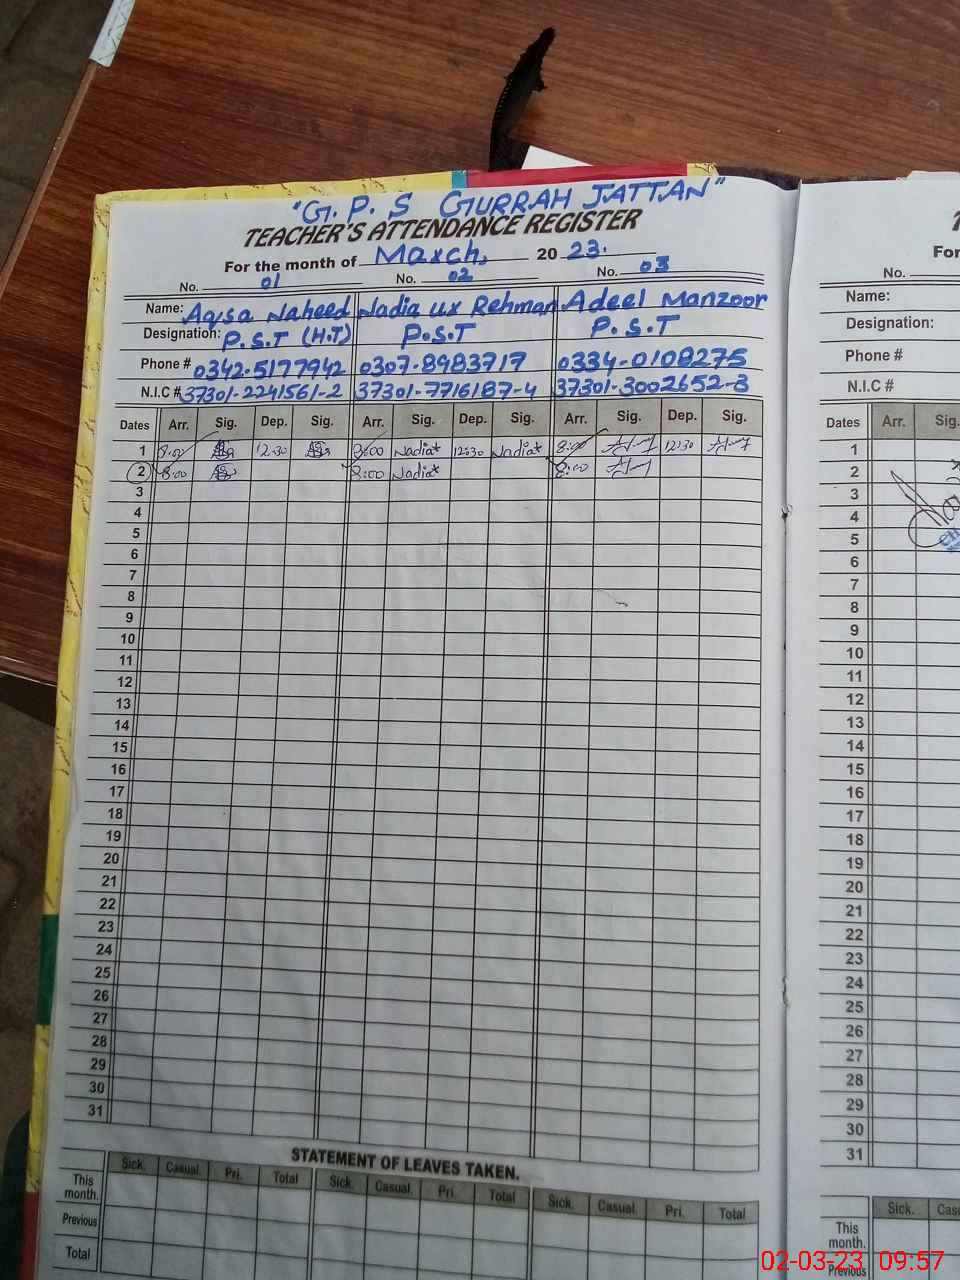 "G. P. S GURRAH JATTAN"
TEACHER'S ATTENDANCE REGISTER
For the month of March, 20 23.
No. 01 No. 02 No. 03
Name: Aqsa Naheed Nadia ur Rehman Adeel Manzoor
Designation: P.S.T (H.T) P.S.T P.S.T
Phone # 0342-5177942 0307-8983717 0334-0108275
N.I.C # 37301-2241561-2 37301-7716187-4 37301-3002652-3
Dates Arr. Sig. Dep. Sig. Arr. Sig. Dep. Sig. Arr. Sig. Dep. Sig.
1 8:00 12:30 8:00 Nadia 12:30 Nadia 8:00 12:30
2 8:00 8:00 Nadia 8:00
3
4
5
6
7
8
9
10
11
12
13
14
15
16
17
18
19
20
21
22
23
24
25
26
27
28
29
30
31
STATEMENT OF LEAVES TAKEN.
Sick. Casual. Pri. Total Sick. Casual. Pri. Total Sick. Casual. Pri. Total
This month.
Previous
Total
For
No.
Name:
Designation:
Phone #
N.I.C #
Dates Arr.
1
2
3
4
5
6
7
8
9
10
11
12
13
14
15
16
17
18
19
20
21
22
23
24
25
26
27
28
29
30
31
Sick.
This month.
Previous
02-03-23 09:57